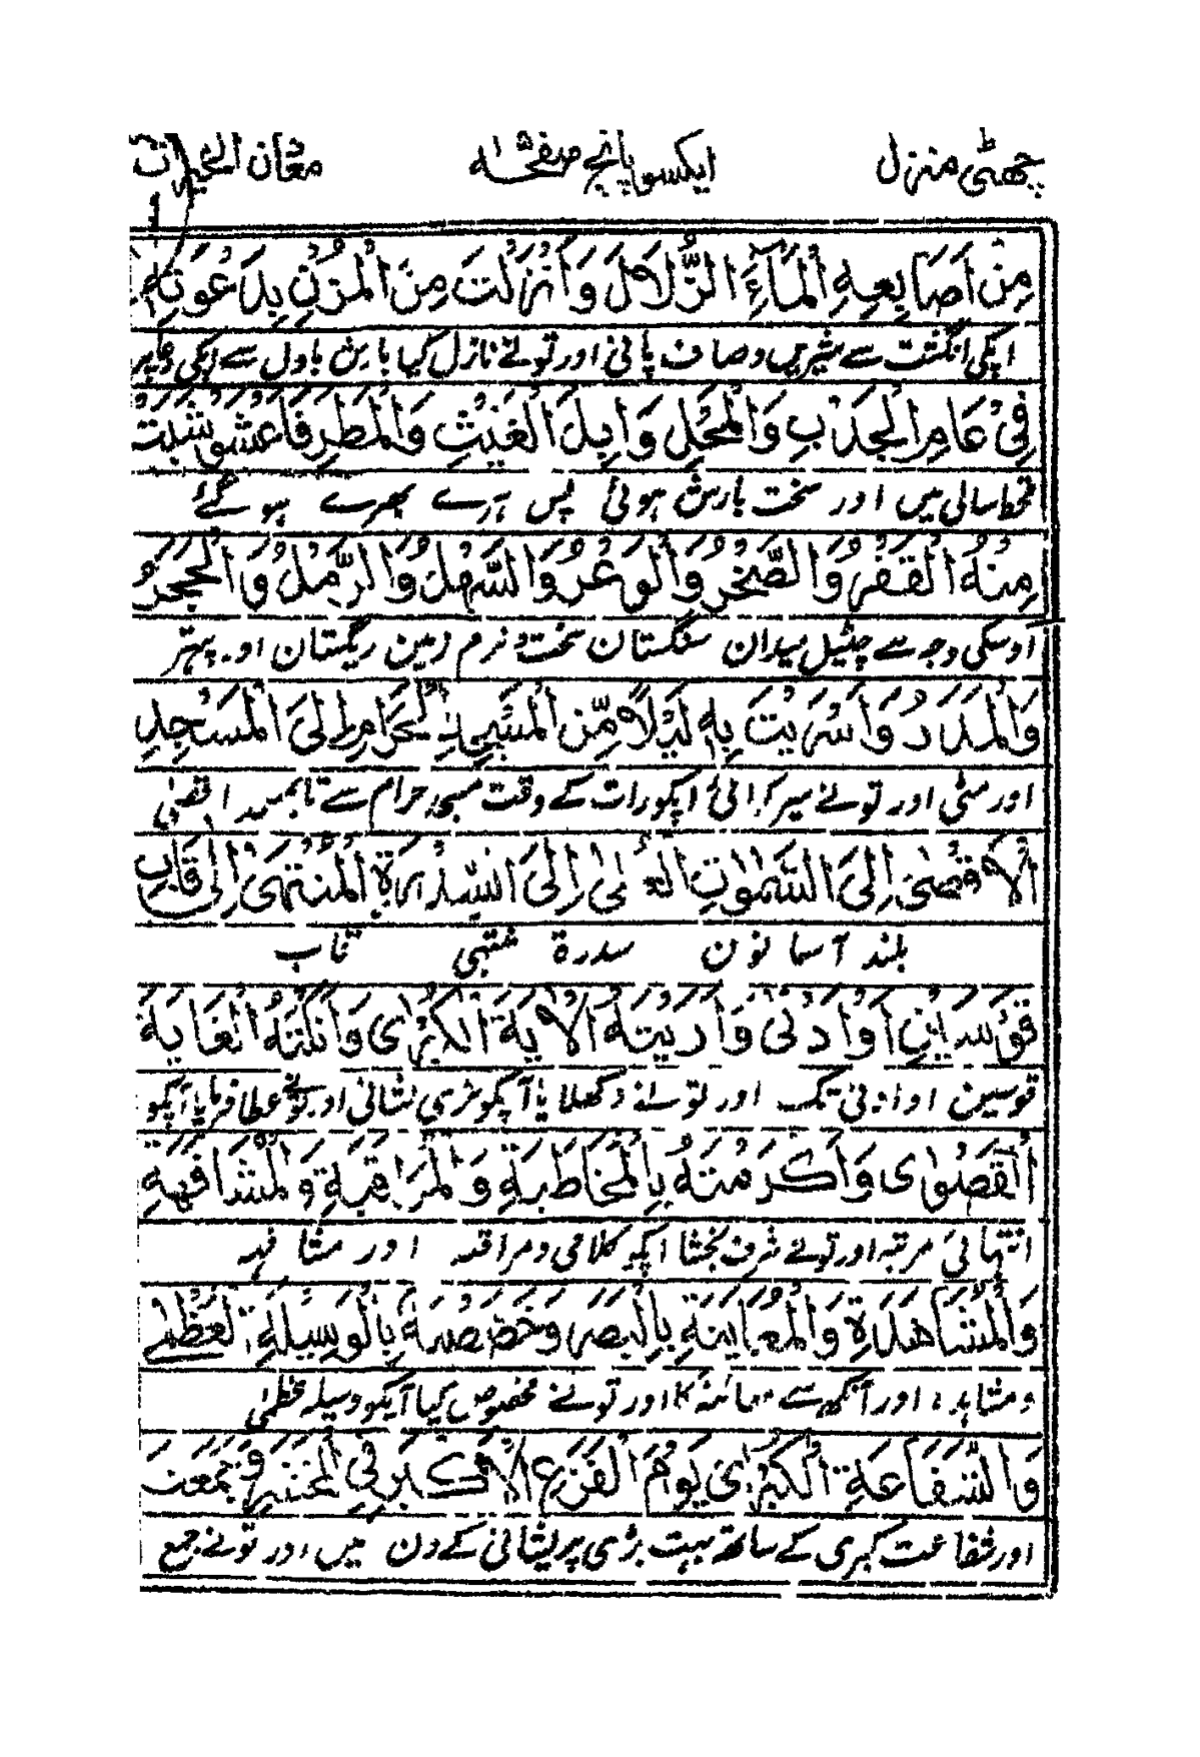 چھٹی منزل ایکسو پانچ صفحہ معان الخیرات
مِنْ اَصَابِعِهِ الْمَآءَ الزُّلَالَ وَاَنْزَلْتَ مِنَ الْمُزْنِ بِدَعْوَتِهٖ
اپکی انگشت سے شیریں و صاف پانی اور تونے نازل کیا بارش بادل سے اپکی دعا پر
فِیْ عَامِ الْجَدْبِ وَالْمَحْلِ وَابِلَ الْغَيْثِ وَالْمَطَرِ فَاعْشَوْشَبَتْ
قحط سالی میں اور سخت بارش ہوئی پس ہرے بھرے ہو گئے
مِنْهُ الْقَفْرُ وَالصَّخْرُ وَالْوَعْرُ وَالسَّهْلُ وَالرَّمْلُ وَالْحَجَرُ
اوسکی وجہ سے چٹیل میدان سنگستان سخت و نرم زمین ریگستان اور پہتر
وَالْمَدَرُ وَاَسْرَيْتَ بِهٖ لَيْلًا مِّنَ الْمَسْجِدِ الْحَرَامِ اِلَى الْمَسْجِدِ
اور مٹی اور تونے سیر کرائی اپکو رات کے وقت مسجد حرام سے تابمسجد اقصیٰ
الْاَقْصٰى اِلَى السَّمٰوٰتِ الْعُلٰى اِلٰى السِّدْرَةِ الْمُنْتَهٰى اِلٰى قَابِ
بلند آسمانوں سدرۃ منتہی قاب
قَوْسَيْنِ اَوْ اَدْنٰى وَاَرَيْتَهُ الْاٰيَةَ الْكُبْرٰى وَاَنَلْتَهُ الْغَايَةَ
قوسین او ادنیٰ تک اور تو نے دکھلایا آپکو بڑی نشانی اور تونے عطا فرمایا آپکو
الْقُصْوٰى وَاَكْرَمْتَهُ بِالْمُخَاطَبَةِ وَالْمُرَاقَبَةِ وَالْمُشَافَهَةِ
انتہائی مرتبہ اور تونے شرف بخشا اپکو کلامی و مراقبہ اور مشافہہ
وَالْمُشَاهَدَةِ وَالْمُعَايَنَةِ بِالْبَصَرِ وَخَصَصْتَهٗ بِالْوَسِيْلَةِ الْعُظْمٰى
ومشاہدہ اور آنکھ سے معائنہ کا اور تونے مخصوص کیا آپکو وسیلہ عظمیٰ
وَالشَّفَاعَةِ الْكُبْرٰى يَوْمَ الْفَزَعِ الْاَكْبَرِ فِي الْمَحْشَرِ وَجَمَعْتَ
اور شفاعت کبری کے ساتھ بہت بڑی پریشانی کے دن میں اور تونے جمع